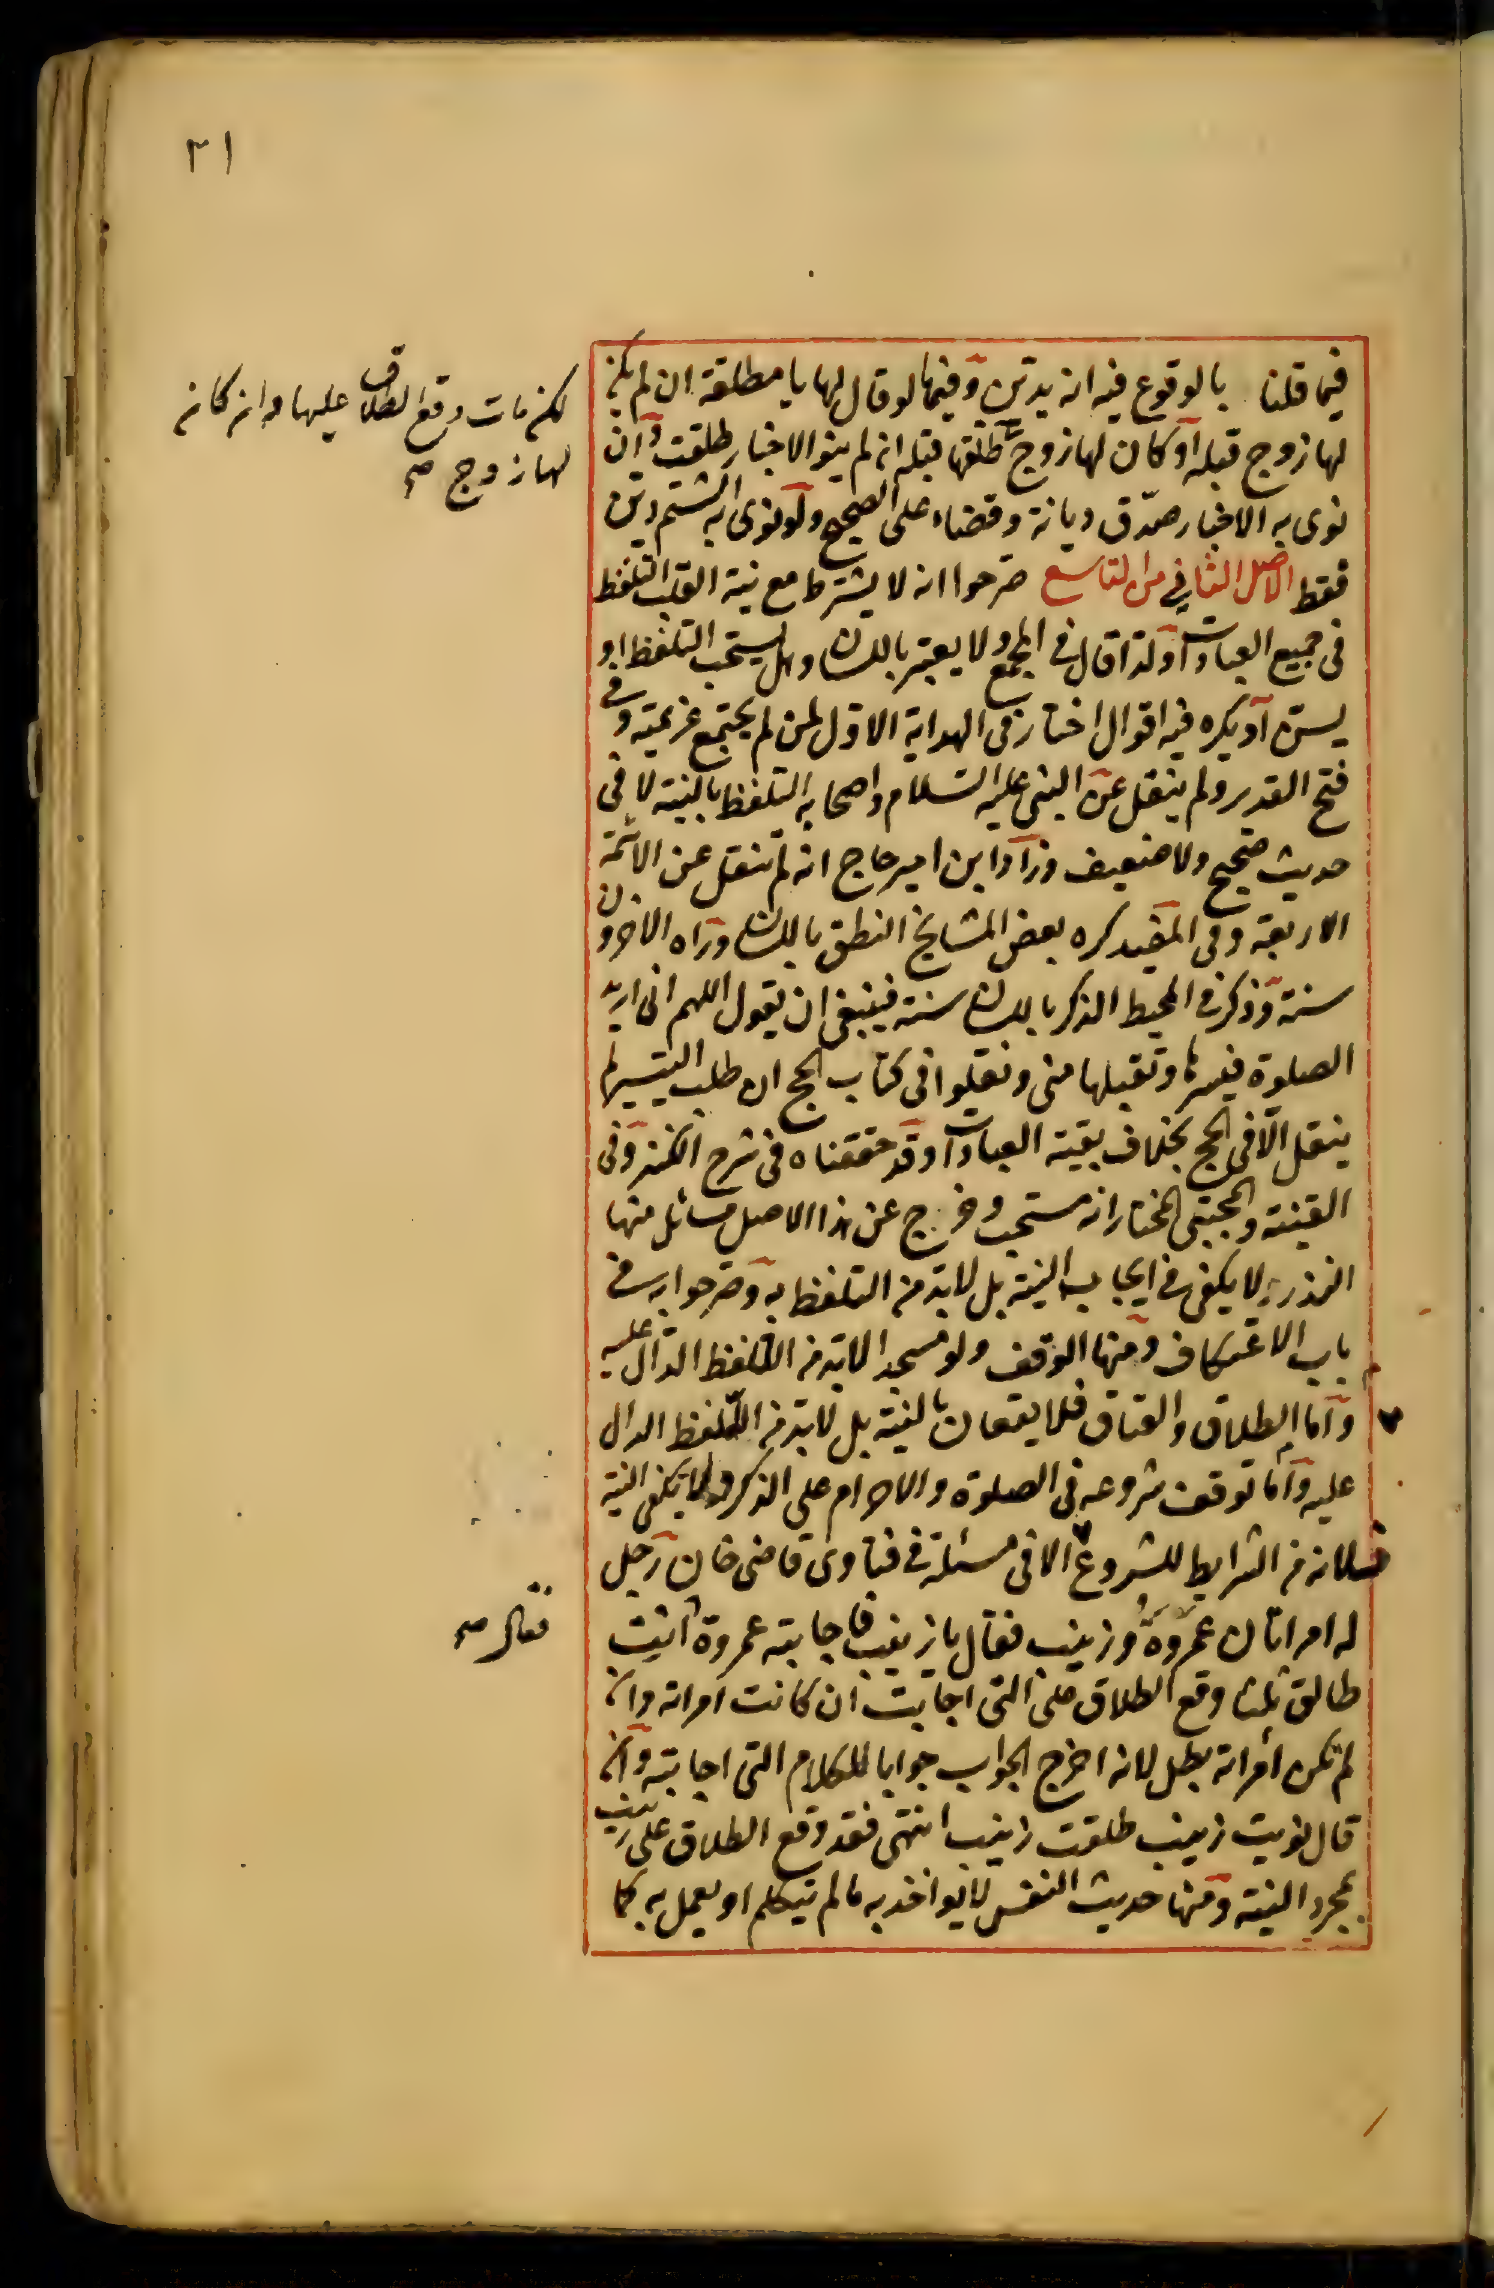 ٣١
فيما قلنا بالوقوع فيه انه يدين وفيما لو قال لها يا مطلقة ان لم يكن
لها زوج قبله او كان لها زوج طلقها قبله ان لم ينو الاخبار طلقت وان
نوى به الاخبار صدّق ديانة وقضاء على الصحيح ولو نوى به الشتم دين
فقط الاصل الثاني من التاسع صرحوا انه لا يشترط مع نية القلب التلفظ
فى جميع العبادات ولذا قال في المجمع ولا يعتبر باللسان وهل يستحب التلفظ او
يسن او يكره فيه اقوال اختار فى الهداية الاول لمن لم يجتمع عزيمته وفي
فتح القدير ولم ينقل عن النبى عليه السلام واصحابه التلفظ بالنية لا فى
حديث صحيح ولا ضعيف وزاد ابن امير حاج انه لم تنقل عن الائمة
الاربعة وفى المفيد كره بعض المشايخ النطق باللسان ورآه الآخرون
سنة وذكر في المحيط الذكر باللسان سنة فينبغى ان يقول اللهم انى اريد
الصلوة فيسرها وتقبلها منى ونقلوا فى كتاب الحج ان طلب التيسير لم
ينقل الّا فى الحج بخلاف بقية العبادات وقد حققناه فى شرح الكنز وفى
القنية والمجتبى المختار انه مستحب وخرج عن هذا الاصل مسائل منها
النذر لا يكفى في ايجابه النية بل لا بد من التلفظ به وصرحوا به في
باب الاعتكاف ومنها الوقف ولو مسجدا لا بد من التلفظ الدال عليه
واما الطلاق والعتاق فلا يقعان بالنية بل لا بد من التلفظ الدال
عليه واما توقف شروعه فى الصلوة والاحرام على الذكر ولا يكفى النية
فلانه من الشرايط للشروع الا فى مسئلة في فتاوى قاضى خان رجل
له امراتان عمروة وزينب فقال يا زينب فاجابته عمروة انت
طالق ثلثا وقع الطلاق على التى اجابت ان كانت امراته وان
لم تكن أمراته بطل لانه اخرج الجواب جوابا لكلام التى اجابته وان
قال نويت زينب طلقت زينب انتهى فقد وقع الطلاق على زينب
بمجرد النية ومنها حديث النفس لا يؤاخذ به ما لم يتكلم او يعمل به كما
لكن مات وقع الطلاق عليها وان كان
لها زوج صح
فقال صح